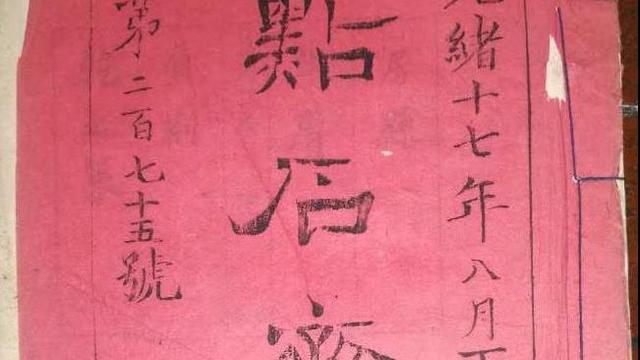 光緒十七年八月下
點石齋
第二百七十五號